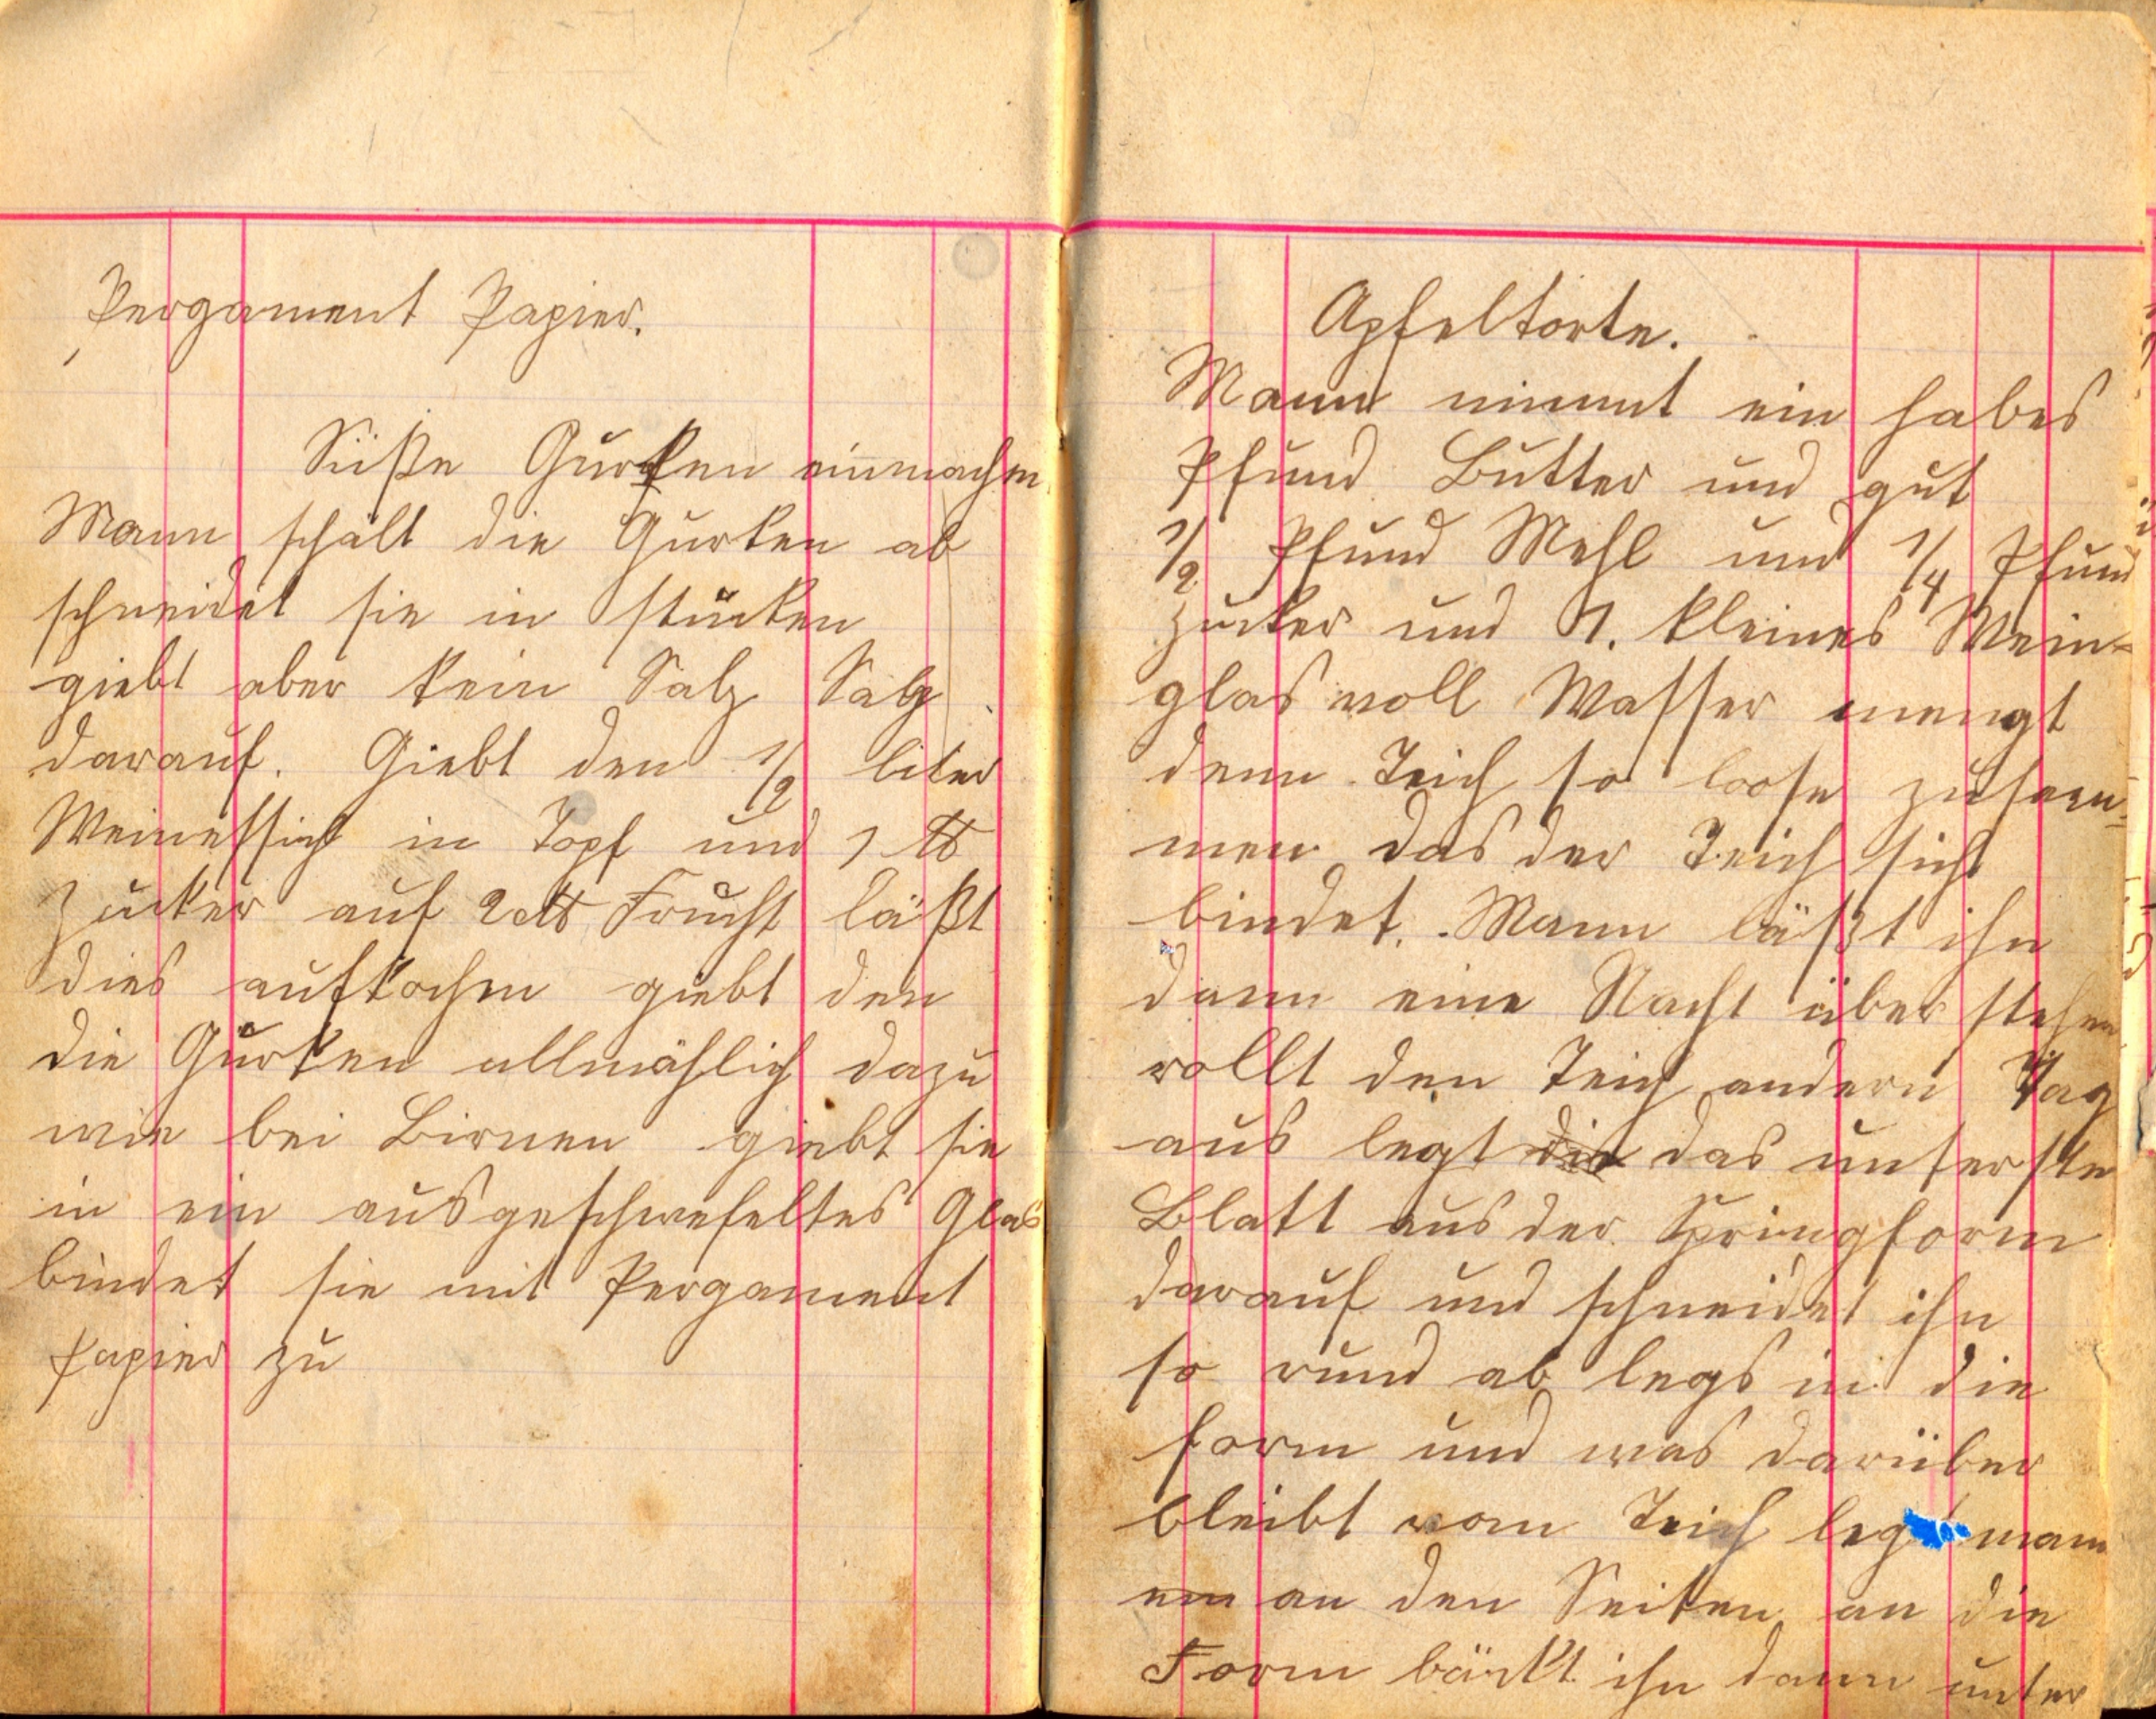 Pergament Papier.
Süße Gurken einmachen
Mann schält die Gurken ab
schneidet sie in stücken
giebt aber kein Salz Salz
darauf. Giebt den 1/2 liter
Weinessich in Topf und 1 ℔
Zucker auf 2 ℔ Frucht läßt
dies aufkochen giebt den
die Gurken allmählich dazu
wie bei Birnen giebt sie
in ein ausgeschwefeltes Glas
bindet sie mit Pergament
papier zu
Apfeltorte.
Mann nimmt ein habes
Pfund Butter und gut
1/2 Pfund Mehl und 1/4 Pfund
Zucker und 1. kleines Wein-
glas voll Wasser mengt
denn Teich so loose zusam-
men das der Teich sich
bindet. Mann läßt ihn
dann eine Nacht über stehen
rollt den Teich andern Tag
aus legt die das unterste
Blatt aus der Springform
darauf und schneidet ihn
so rund ab legs in die
form und was darüber
bleibt vom Teich legt man
em an den Seiten an die
Form bäckt ihn dann unter